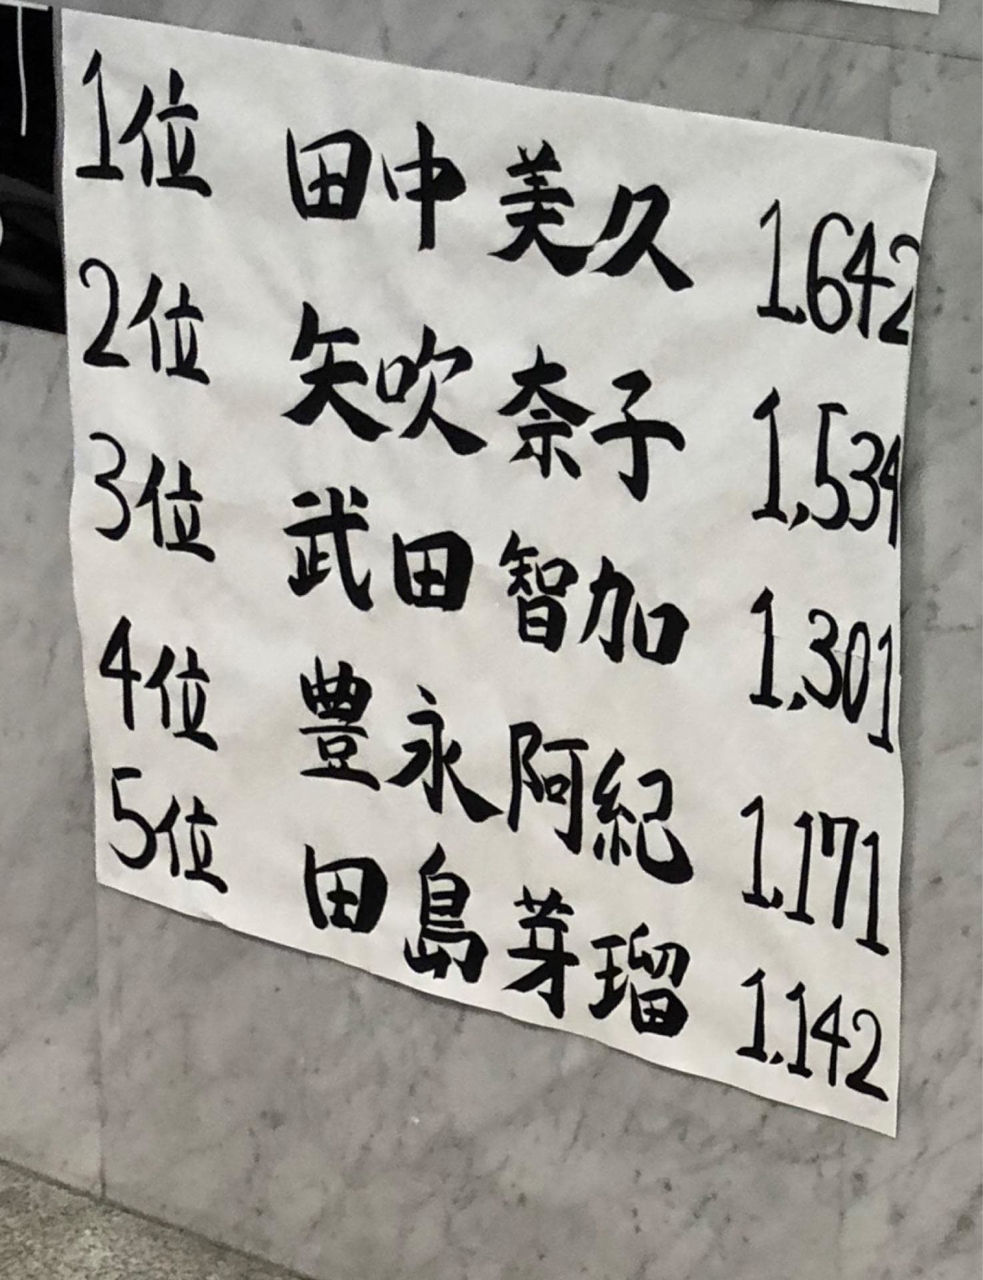 1位 田中美久 1,642
2位 矢吹奈子 1,534
3位 武田智加 1,301
4位 豊永阿紀 1,171
5位 田島芽瑠 1,142